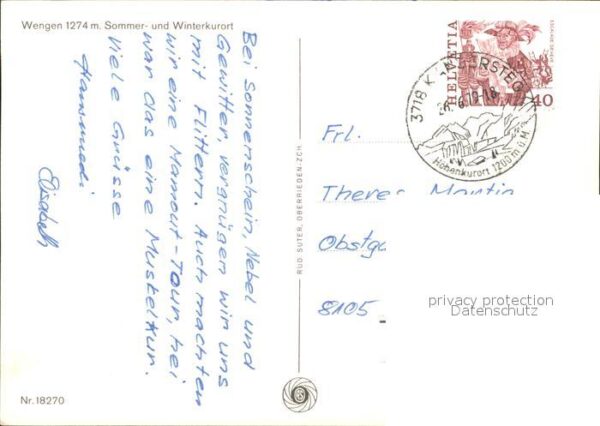 Wengen 1274 m. Sommer- und Winterkurort
Bei Sonnenschein, Nebel und
Gewitter, vergnügen wir uns
mit Flittern. Auch machten
wir eine Mamout-Tour, hei
war das eine Muskelkur.
Viele Grüsse
Hansruedi
Elisabeth
Nr. 18270
RUD. SUTER, OBERRIEDEN-ZCH.
HELVETIA
40
3718 KANDERSTEG
Höhenkurort 1200 m ü M
Frl.
Theres
Obstga
8105
privacy protection
Datenschutz